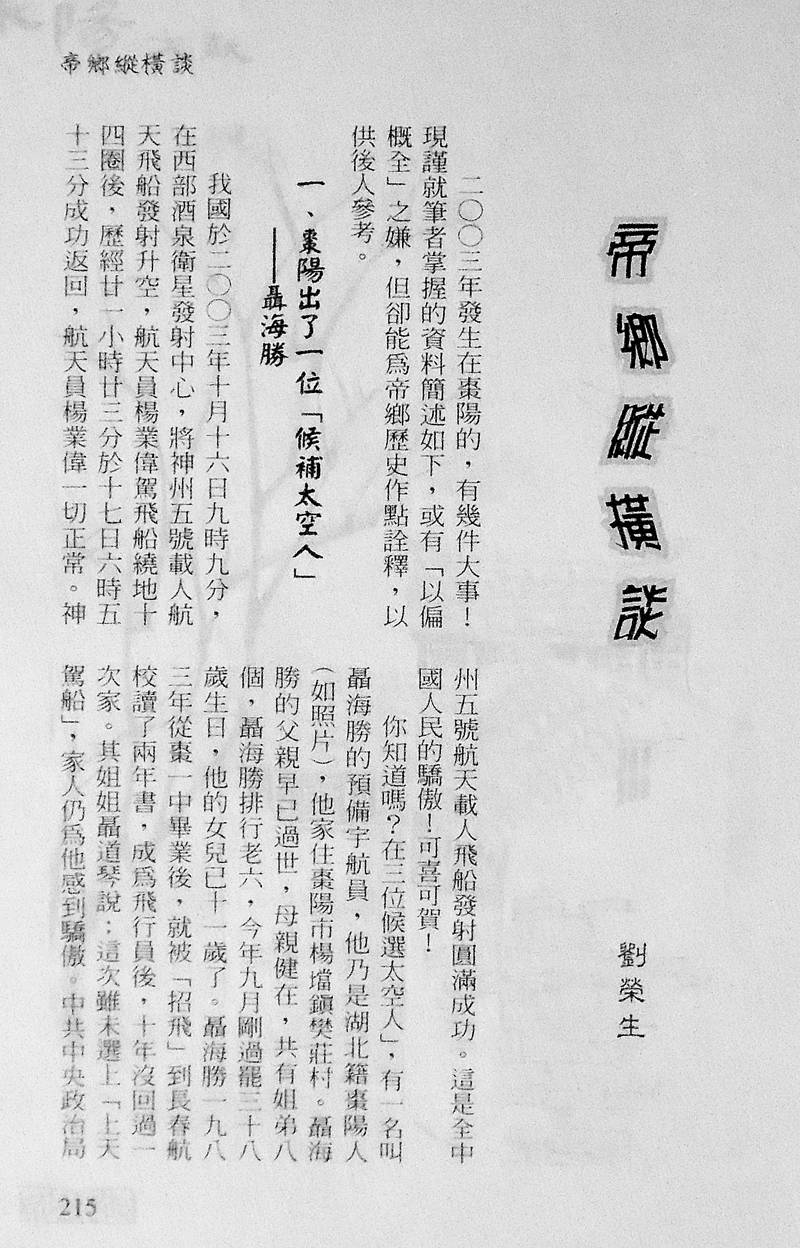 帝鄉縱橫談
帝鄉縱橫談
劉榮生
二〇〇三年發生在棗陽的，有幾件大事！
現謹就筆者掌握的資料簡述如下，或有「以偏
概全」之嫌，但卻能爲帝鄉歷史作點詮釋，以
供後人參考。
一、棗陽出了一位「候補太空人」
——聶海勝
我國於二〇〇三年十月十六日九時九分，
在西部酒泉衛星發射中心，將神州五號載人航
天飛船發射升空，航天員楊業偉駕飛船繞地十
四圈後，歷經廿一小時廿三分於十七日六時五
十三分成功返回，航天員楊業偉一切正常。神
州五號航天載人飛船發射圓滿成功。這是全中
國人民的驕傲！可喜可賀！
你知道嗎？在三位候選太空人」，有一名叫
聶海勝的預備宇航員，他乃是湖北籍棗陽人
（如照片），他家住棗陽市楊壋鎭樊莊村。聶海
勝的父親早已過世，母親健在，共有姐弟八
個，聶海勝排行老六，今年九月剛過罷三十八
歲生日，他的女兒已十一歲了。聶海勝一九八
三年從棗一中畢業後，就被「招飛」到長春航
校讀了兩年書，成爲飛行員後，十年沒回過一
次家。其姐姐聶道琴說：這次雖未選上「上天
駕船」，家人仍爲他感到驕傲。中共中央政治局
215